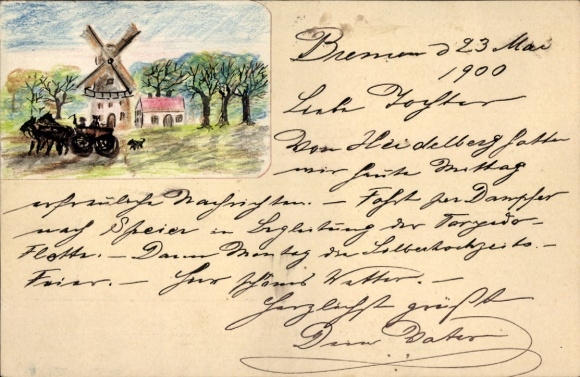 Bremen d 23 Mai
1900
Liebe Tochter
Von Heidelberg hatten
wir heute Mittag
erfreuliche Nachrichten. — Fahrt per Dampfer
nach Speier in Begleitung der Torpedo-
Flotte. — Dann Montag die Silberhochzeits-
Feier. — Hier schönes Wetter. —
Herzlichst grüßt
Dein Vater